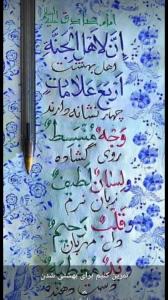 امام صادق علیه السلام
إنّ لأهل الجنّة
اهل بهشت
أربع علامات
چهار نشانه دارند
وجه منبسط
روی گشاده
ولسان لطیف
زبان نرم
وقلب رحیم
دل مهربان
تمرین کنیم برای بهشتی شدن